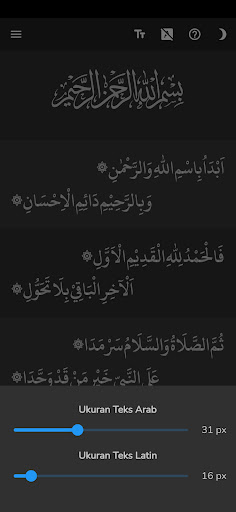 بِسْمِ اللهِ الرَّحْمٰنِ الرَّحِيْمِ
اَبْدَأُ بِاسْمِ اللهِ وَالرَّحْمٰنِ ۞
وَبِالرَّحِيْمِ دَائِمِ الْاِحْسَانِ ۞
فَالْحَمْدُ لِلّٰهِ الْقَدِيْمِ الْاَوَّلِ ۞
اَلْآخِرِ الْبَاقِيْ بِلَا تَحَوُّلِ ۞
ثُمَّ الصَّلَاةُ وَالسَّلَامُ سَرْمَدَا ۞
عَلَى النَّبِيِّ خَيْرِ مَنْ قَدْ وَحَّدَا ۞
Ukuran Teks Arab
31 px
Ukuran Teks Latin
16 px